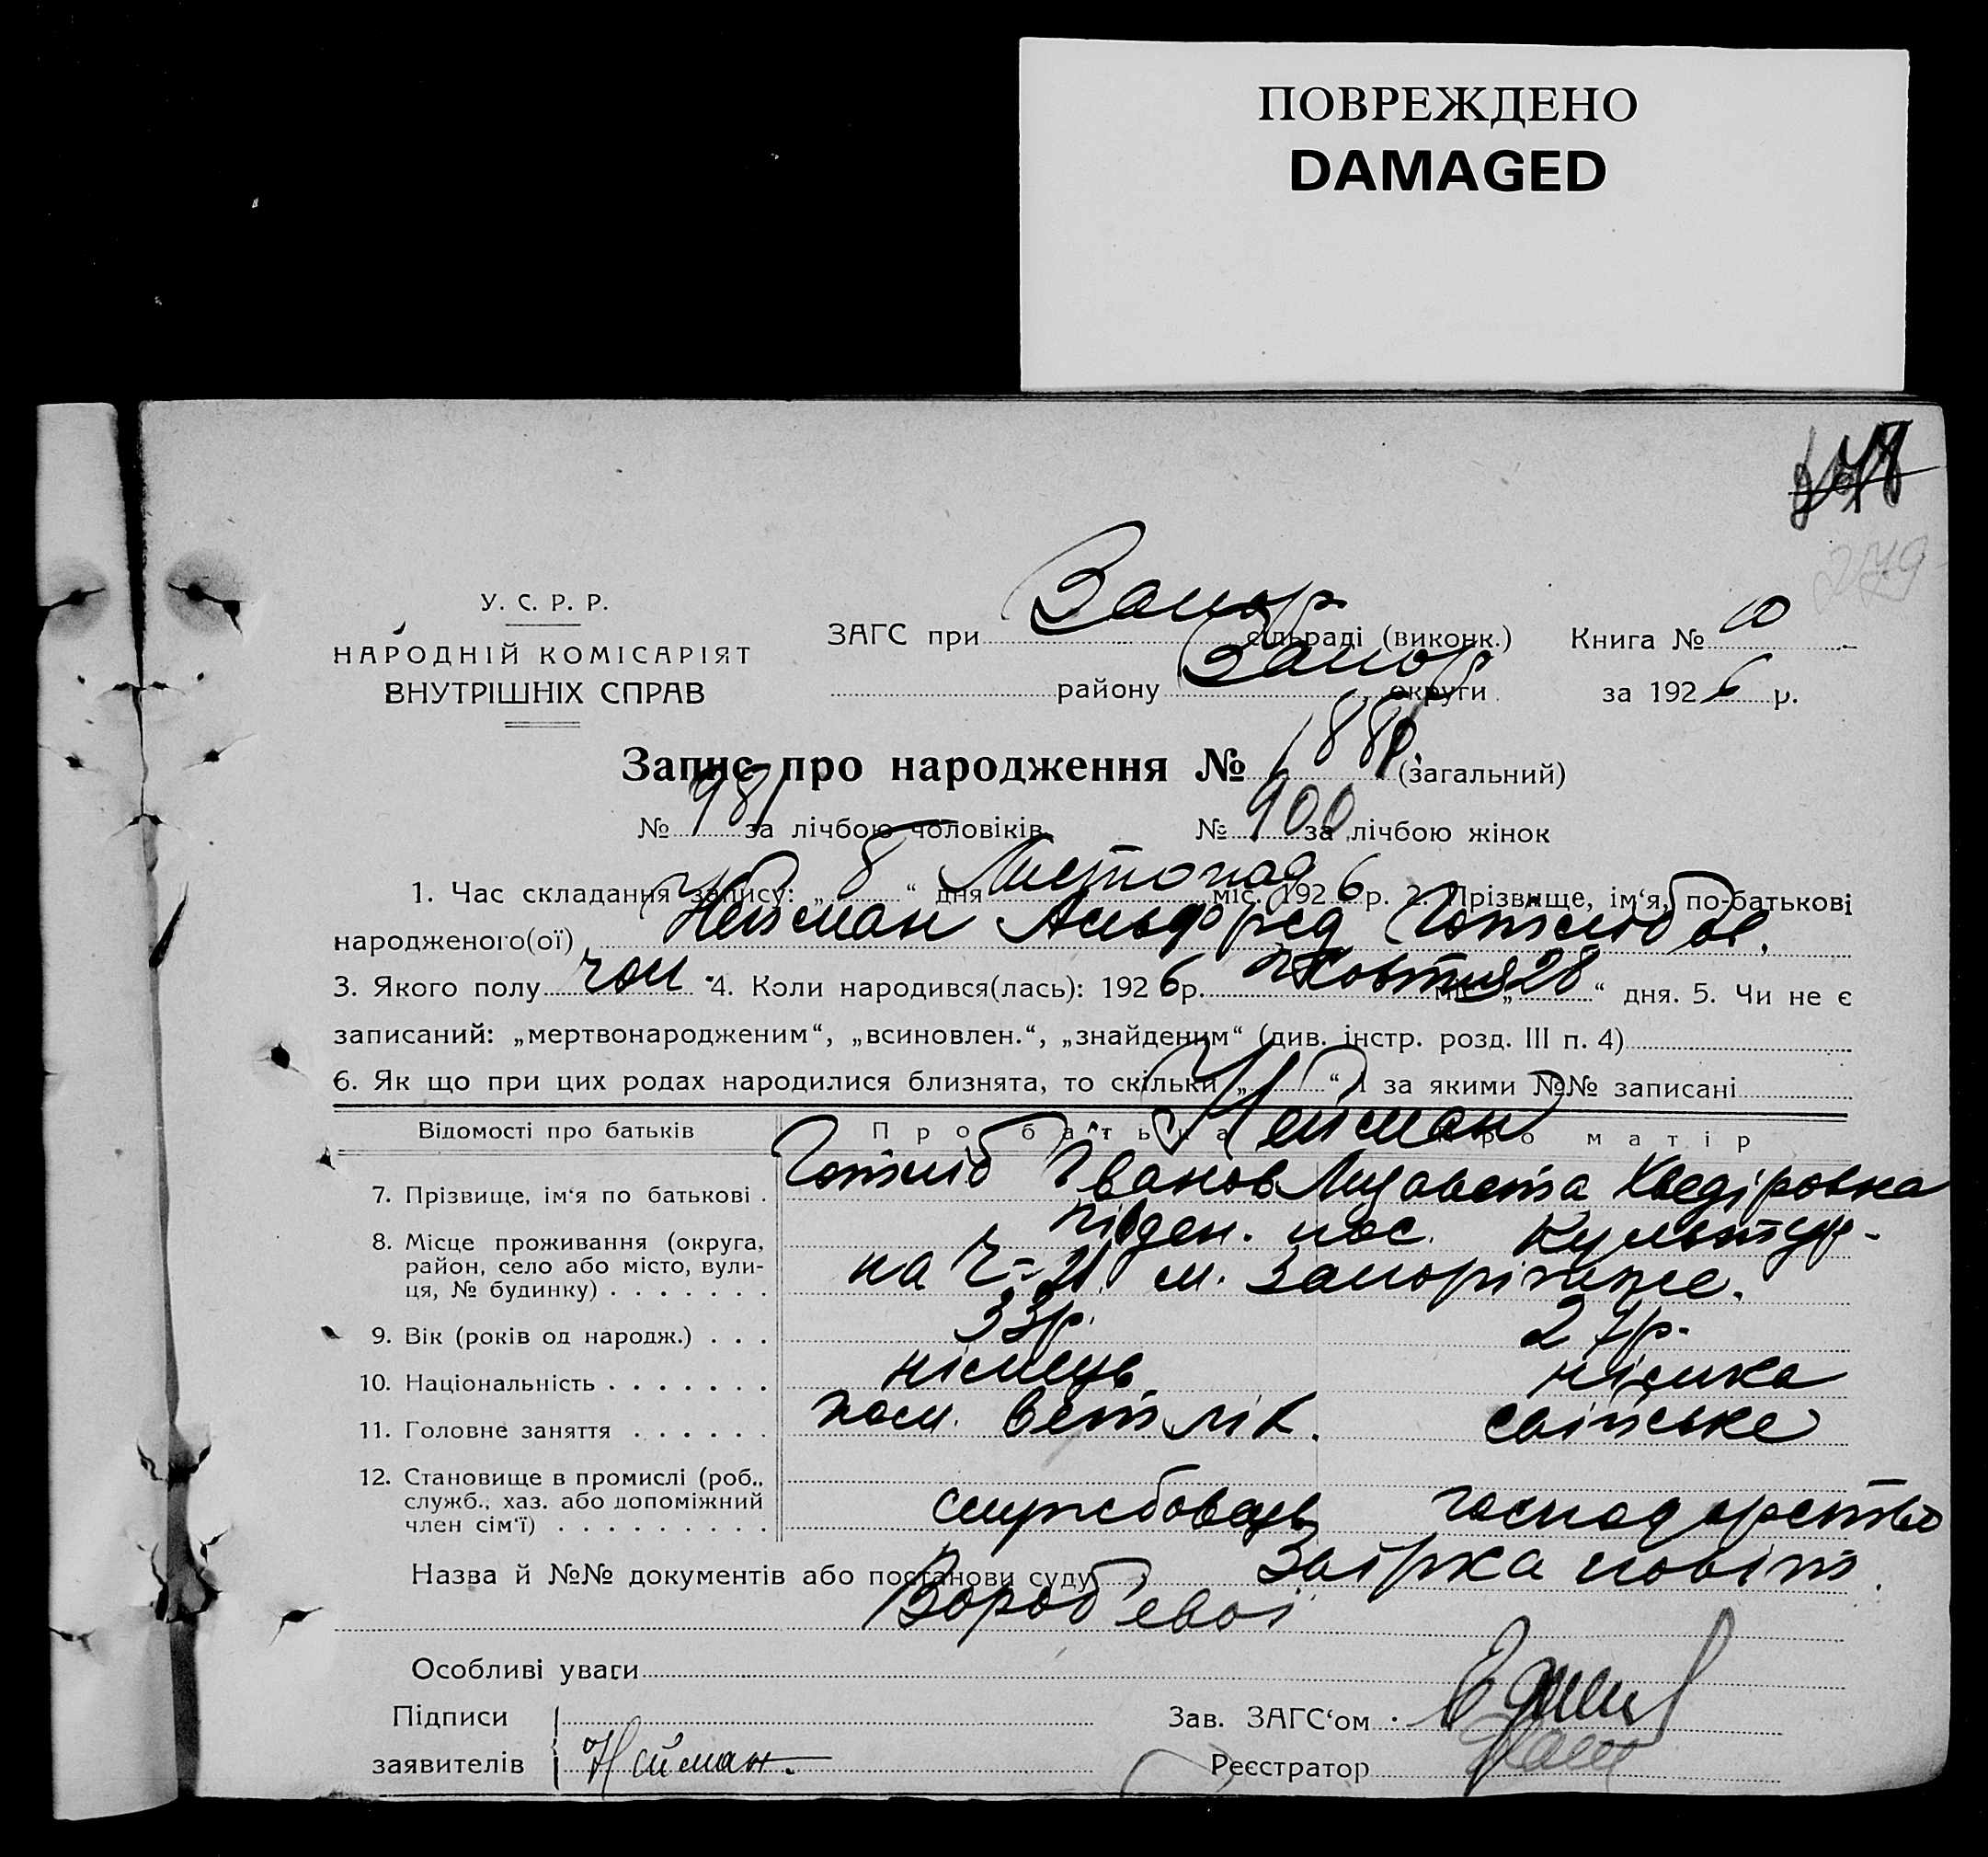 ПОВРЕЖДЕНО
DAMAGED
279
У. С. Р. Р.
НАРОДНІЙ КОМІСАРІЯТ
ВНУТРІШНІХ СПРАВ
ЗАГС при Запор сільраді (виконк.) Книга № 10
району Запор округи за 1926 р.
Запис про народження № 1881 (загальний)
№ 981 за лічбою чоловіків № 900 за лічбою жінок
1. Час складання запису: „ 8 “ дня Листопад міс. 1926 р. 2. Прізвище, ім‘я, по-батькові
народженого(ої) Нейман Альфред Готлібов.
3. Якого полу чол 4. Коли народився(лась): 1926 р. Жовтня міс. „ 28 “ дня. 5. Чи не є
записаний: „мертвонародженим“, „всиновлен.“, „знайденим“ (див. інстр. розд. III п. 4)
6. Як що при цих родах народилися близнята, то скільки „ “ і за якими №№ записані
Відомості про батьків Про батька Про матір
Нейман
7. Прізвище, ім‘я по батькові . Готліб Іванов Лизавета Хведіровна
8. Місце проживання (округа, район, село або місто, вули-ця, № будинку) . . . . . . . півден. пос. Культур-
на м. Запоріжже.
9. Вік (років од народж.) . . . 33р. 27р.
10. Національність . . . . . . . німець німка
11. Головне заняття . . . . . . пом. вет. лік. сільське
12. Становище в промислі (роб., служб., хаз. або допоміжний член сім‘ї) . . . . . . . . . службовець господарство
Назва й №№ документів або постанови суду Завірка повіт.
Вороб'евої
Особливі уваги
Підписи
заявителів Нейман.
Зав. ЗАГС‘ом
Реєстратор